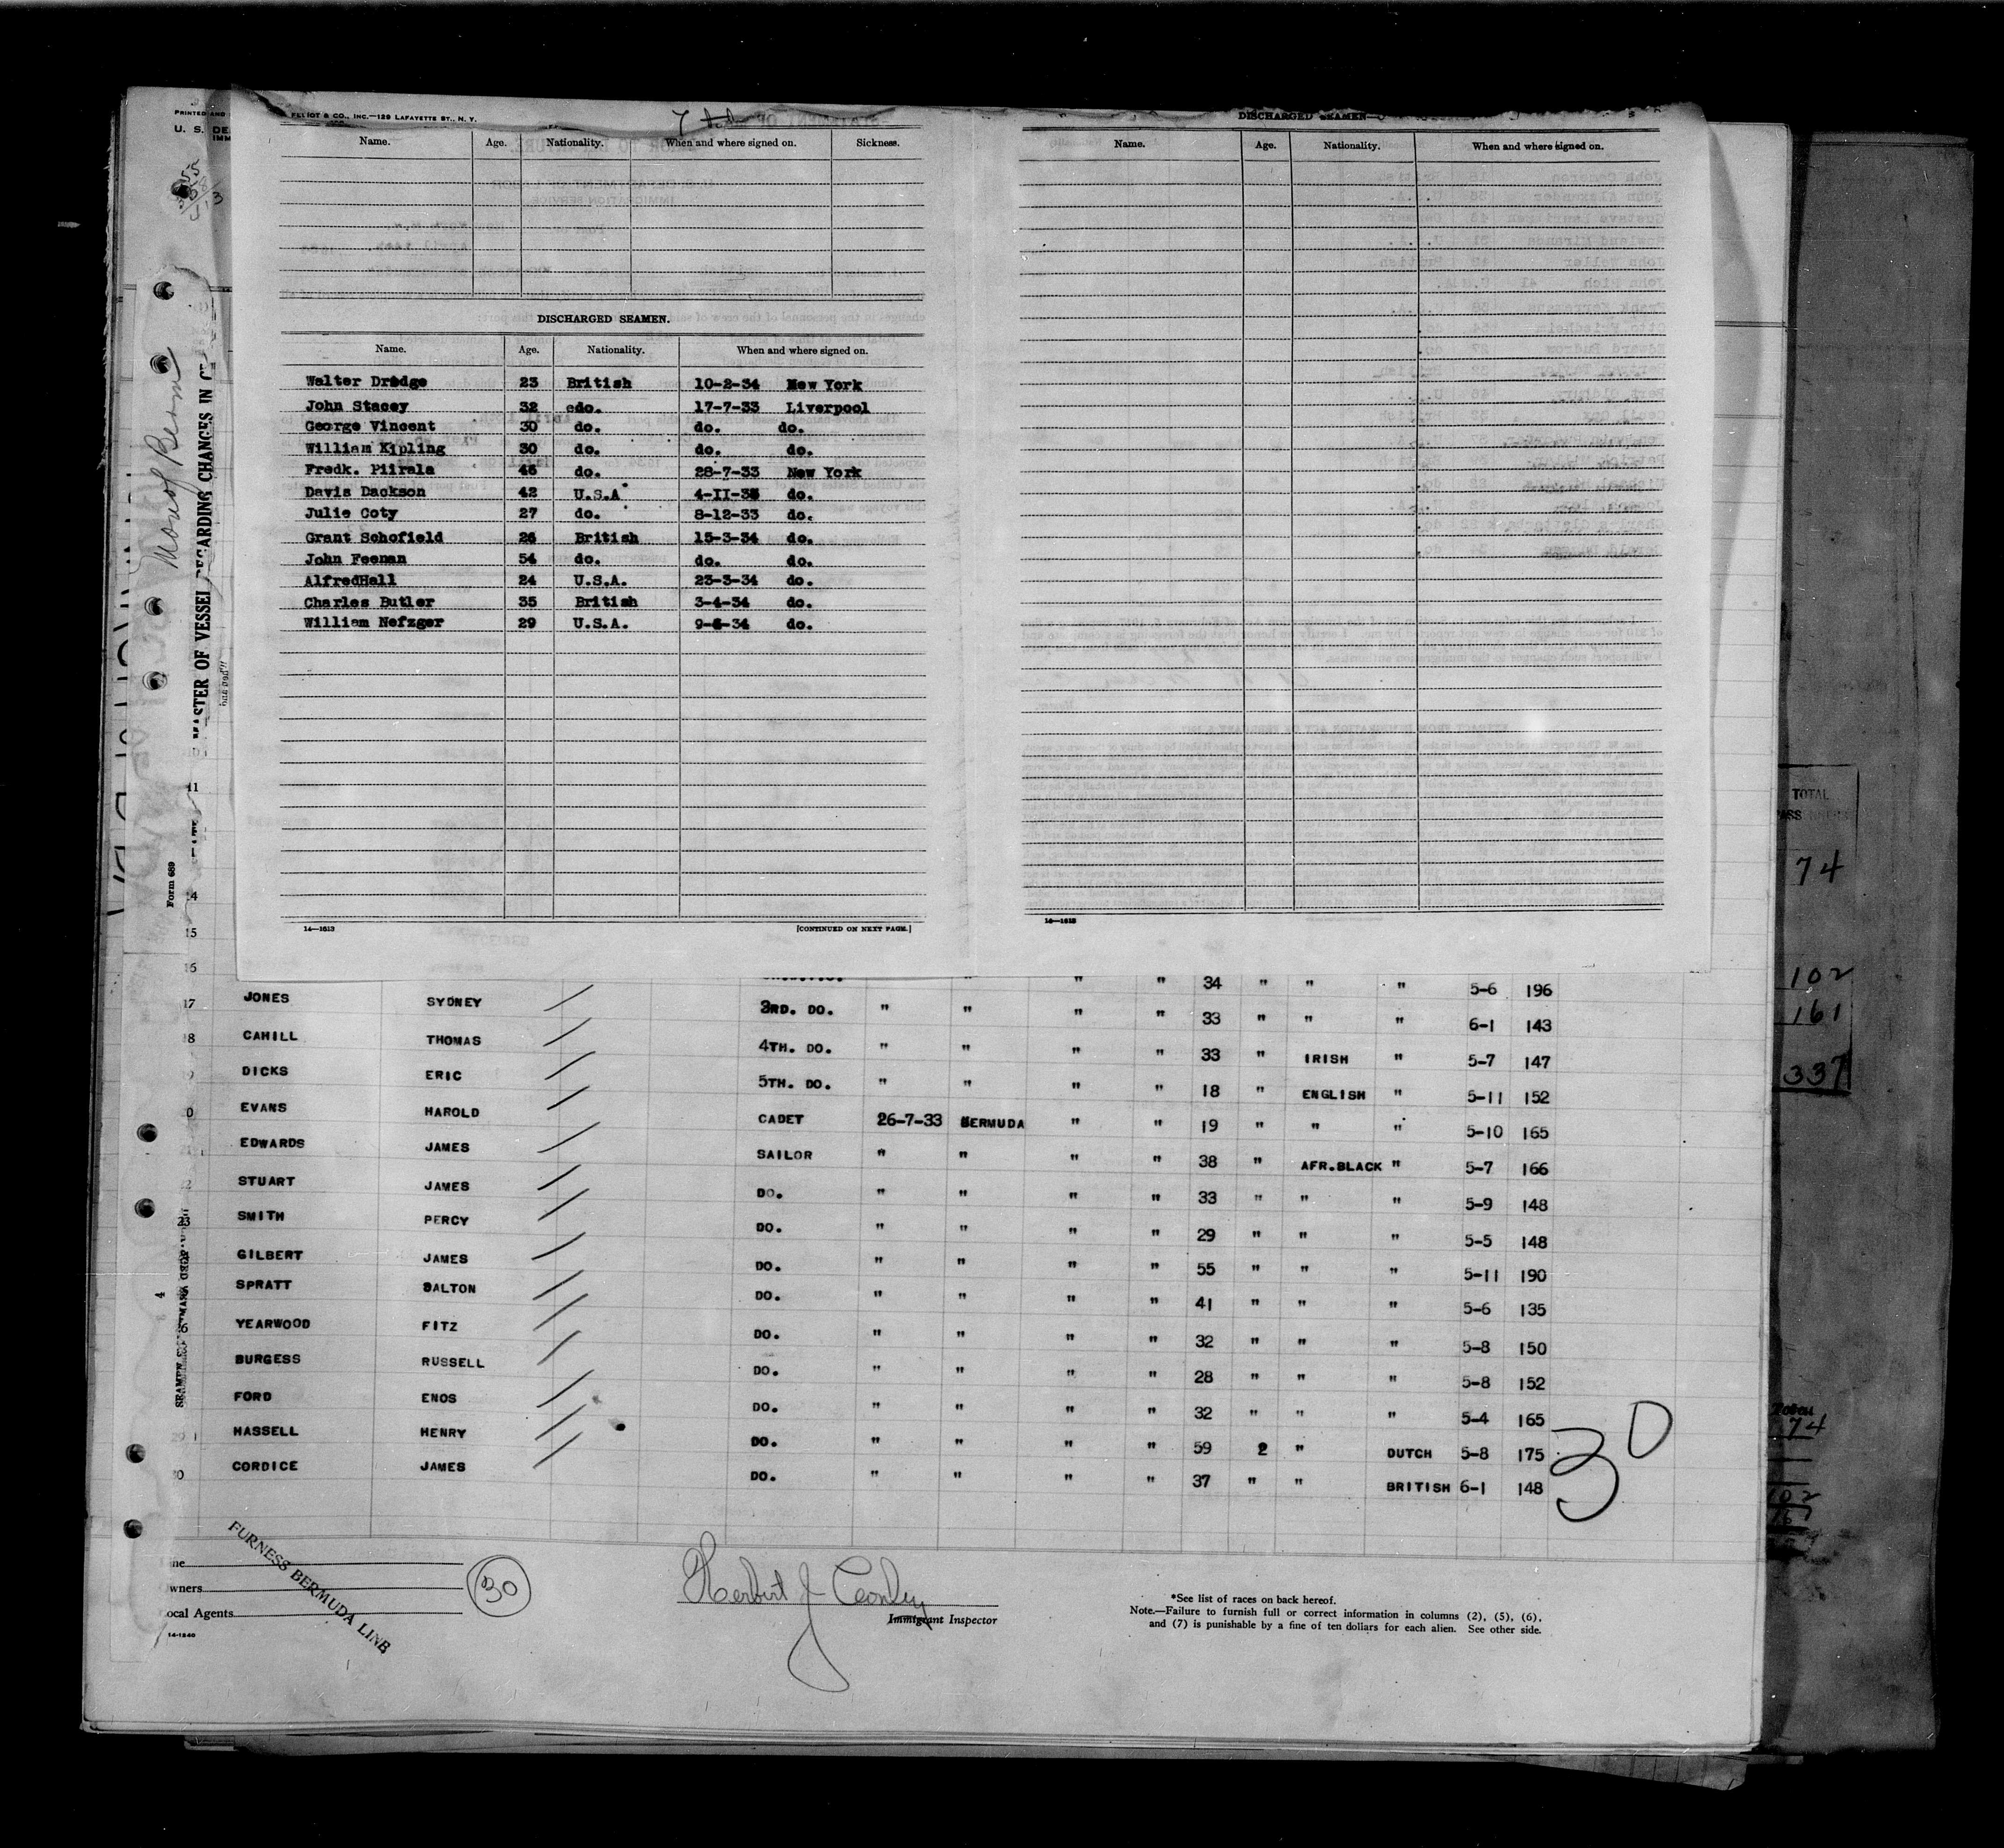 PRINTED AND
ELLIOT & CO., INC.—129 LAFAYETTE ST., N. Y.
U. S. DE
IMM
Name. Age. Nationality. When and where signed on. Sickness.
DISCHARGED SEAMEN.
Name. Age. Nationality. When and where signed on.
Walter Dredge 23 British 10-2-34 New York
John Stacey 32 edo. 17-7-33 Liverpool
George Vincent 30 do. do. do.
William Kipling 30 do. do. do.
Fredk. Piirala 46 do. 28-7-33 New York
Davis Dackson 42 U.S.A 4-II-33 do.
Julie Coty 27 do. 8-12-33 do.
Grant Schofield 26 British 15-3-34 do.
John Feenan 54 do. do. do.
AlfredHall 24 U.S.A. 23-3-34 do.
Charles Butler 35 British 3-4-34 do.
William Nefzger 29 U.S.A. 9-4-34 do.
14—1613 [CONTINUED ON NEXT PAGE.]
DISCHARGED SEAMEN—
Name. Age. Nationality. When and where signed on.
14—1613
Monof Berm
MASTER OF VESSEL REGARDING CHANGES IN
Form 689
11
14
15
16 " " 34 " " " 5-6 196
17 JONES SYDNEY 3RD. DO. " " " " 33 " " " 6-1 143
18 CAHILL THOMAS 4TH. DO. " " " " 33 " IRISH " 5-7 147
DICKS ERIC 5TH. DO. " " " " 18 " ENGLISH " 5-11 152
EVANS HAROLD CADET 26-7-33 BERMUDA " " 19 " " " 5-10 165
EDWARDS JAMES SAILOR " " " " 38 " AFR.BLACK " 5-7 166
STUART JAMES DO. " " " " 33 " " " 5-9 148
23 SMITH PERCY DO. " " " " 29 " " " 5-5 148
GILBERT JAMES DO. " " " " 55 " " " 5-11 190
SPRATT DALTON DO. " " " " 41 " " " 5-6 135
YEARWOOD FITZ DO. " " " " 32 " " " 5-8 150
BURGESS RUSSELL DO. " " " " 28 " " " 5-8 152
FORD ENOS DO. " " " " 32 " " " 5-4 165
29 HASSELL HENRY DO. " " " " 59 2 " DUTCH 5-8 175
30 CORDICE JAMES DO. " " " " 37 " " BRITISH 6-1 148
30
ine
wners
ocal Agents
FURNESS BERMUDA LINE
30
14-1240
Herbert J Conley
Immigrant Inspector
*See list of races on back hereof.
Note.—Failure to furnish full or correct information in columns (2), (5), (6),
and (7) is punishable by a fine of ten dollars for each alien. See other side.
TOTAL
74
102
161
337
74
102